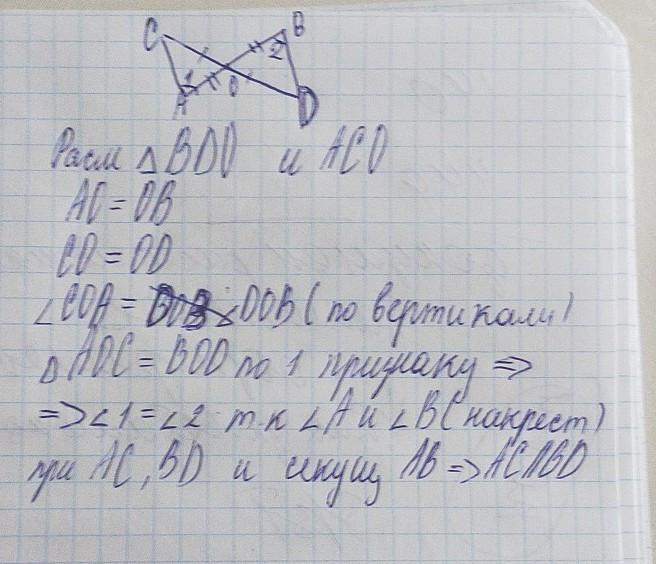 C B
1 2
A O D
Расм △BDO и ACO
AO = OB
CO = OD
∠COA = ∠DOB (по вертикали)
△AOC = BOD по 1 признаку =>
=> ∠1 = ∠2 т.к ∠A и ∠B (накрест)
при AC, BD и секущ AB => AC||BD